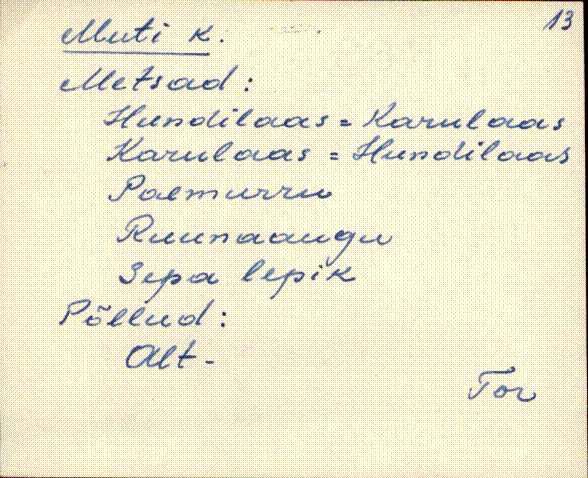 13
Muti k.
Metsad:
Hundilaas = Karulaas
Karulaas = Hundilaas
Paemurru
Ruunaaugu
Sepa lepik
Põllud:
Alt-
Tor